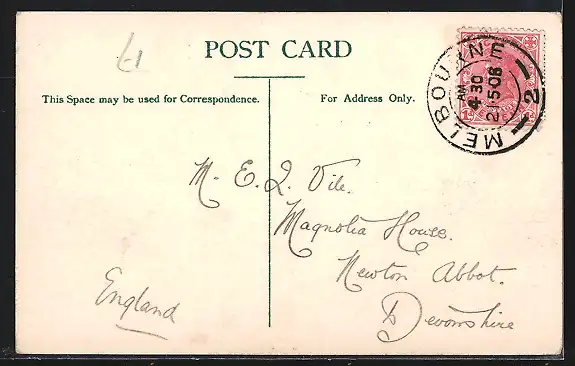 £1
POST CARD
This Space may be used for Correspondence.
For Address Only.
MELBOURNE
AM
4 30
21·5·08
2
M. E. Q. Vile.
Magnolia House.
Newton Abbot.
Devonshire
England